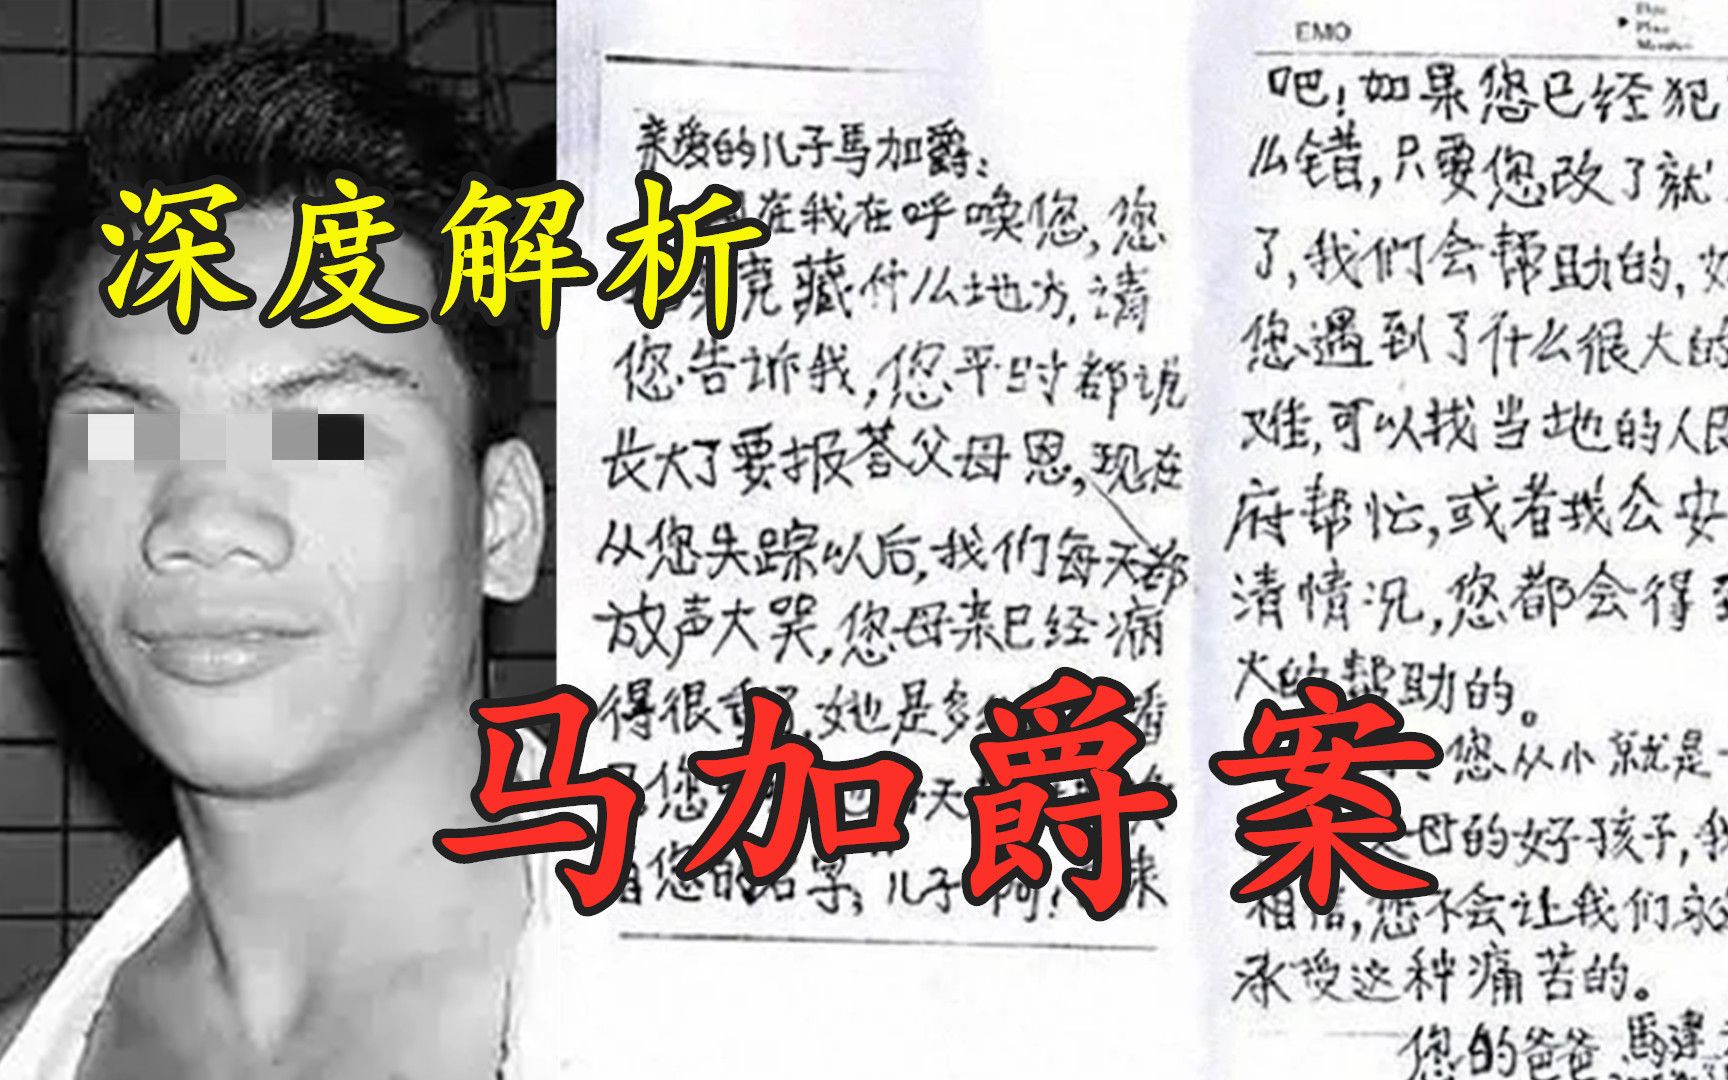 深度解析
马加爵案
亲爱的儿子馬加爵:
在我在呼唤您,您
竟藏什么地方,请
您告诉我,您平时都说
长大了要报答父母恩,现在
从您失踪以后,我们每天都
放声大哭,您母亲已经病
得很重了,她是多
您 天
您的名字,儿子啊! 来
EMO
吧!如果您已经犯
么错,只要您改了就
了,我们会帮助的,如
您遇到了什么很大的
难,可以找当地的人民
府帮忙,或者找公安
清情况,您都会得到
大的帮助的。
您从小就是一
父母的好孩子,我
相信,您不会让我们永
承受这种痛苦的。
您的爸爸 馬建